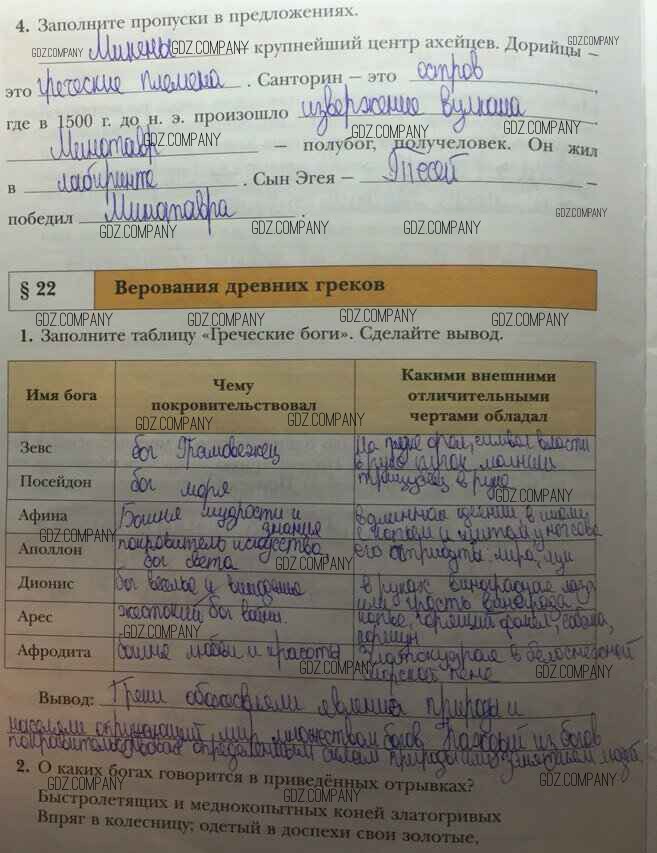 4. Заполните пропуски в предложениях.
Микены крупнейший центр ахейцев. Дорийцы –
это греческие племена. Санторин – это остров,
где в 1500 г. до н. э. произошло извержение вулкана.
Минотавр – полубог, получеловек. Он жил
в лабиринте. Сын Эгея – Тесей –
победил Минотавра.
§ 22 Верования древних греков
1. Заполните таблицу «Греческие боги». Сделайте вывод.
Имя бога Чему покровительствовал Какими внешними отличительными чертами обладал
Зевс бог Громовержец орел, символ власти
в руке молнии
Посейдон бог моря трезубец в руке
Афина Богиня мудрости и знания в шлеме
с копьем и щитом у ног сова
Аполлон покровитель искусства, бог света его атрибуты: лира, лук
Дионис бог веселья и виноделия в руках виноградная лоза
или гроздь винограда
Арес жестокий бог войны. копье, горящий факел, собака,
коршун
Афродита богиня любви и красоты златокудрая в белоснежной
морской пене
Вывод: Греки обожествляли явления природы и
населяли окружающий мир множеством богов. Каждый из богов
покровительствовал определенным силам природы или занятиям людей.
2. О каких богах говорится в приведённых отрывках?
Быстролетящих и меднокопытных коней златогривых
Впряг в колесницу; одетый в доспехи свои золотые,
GDZ.COMPANY